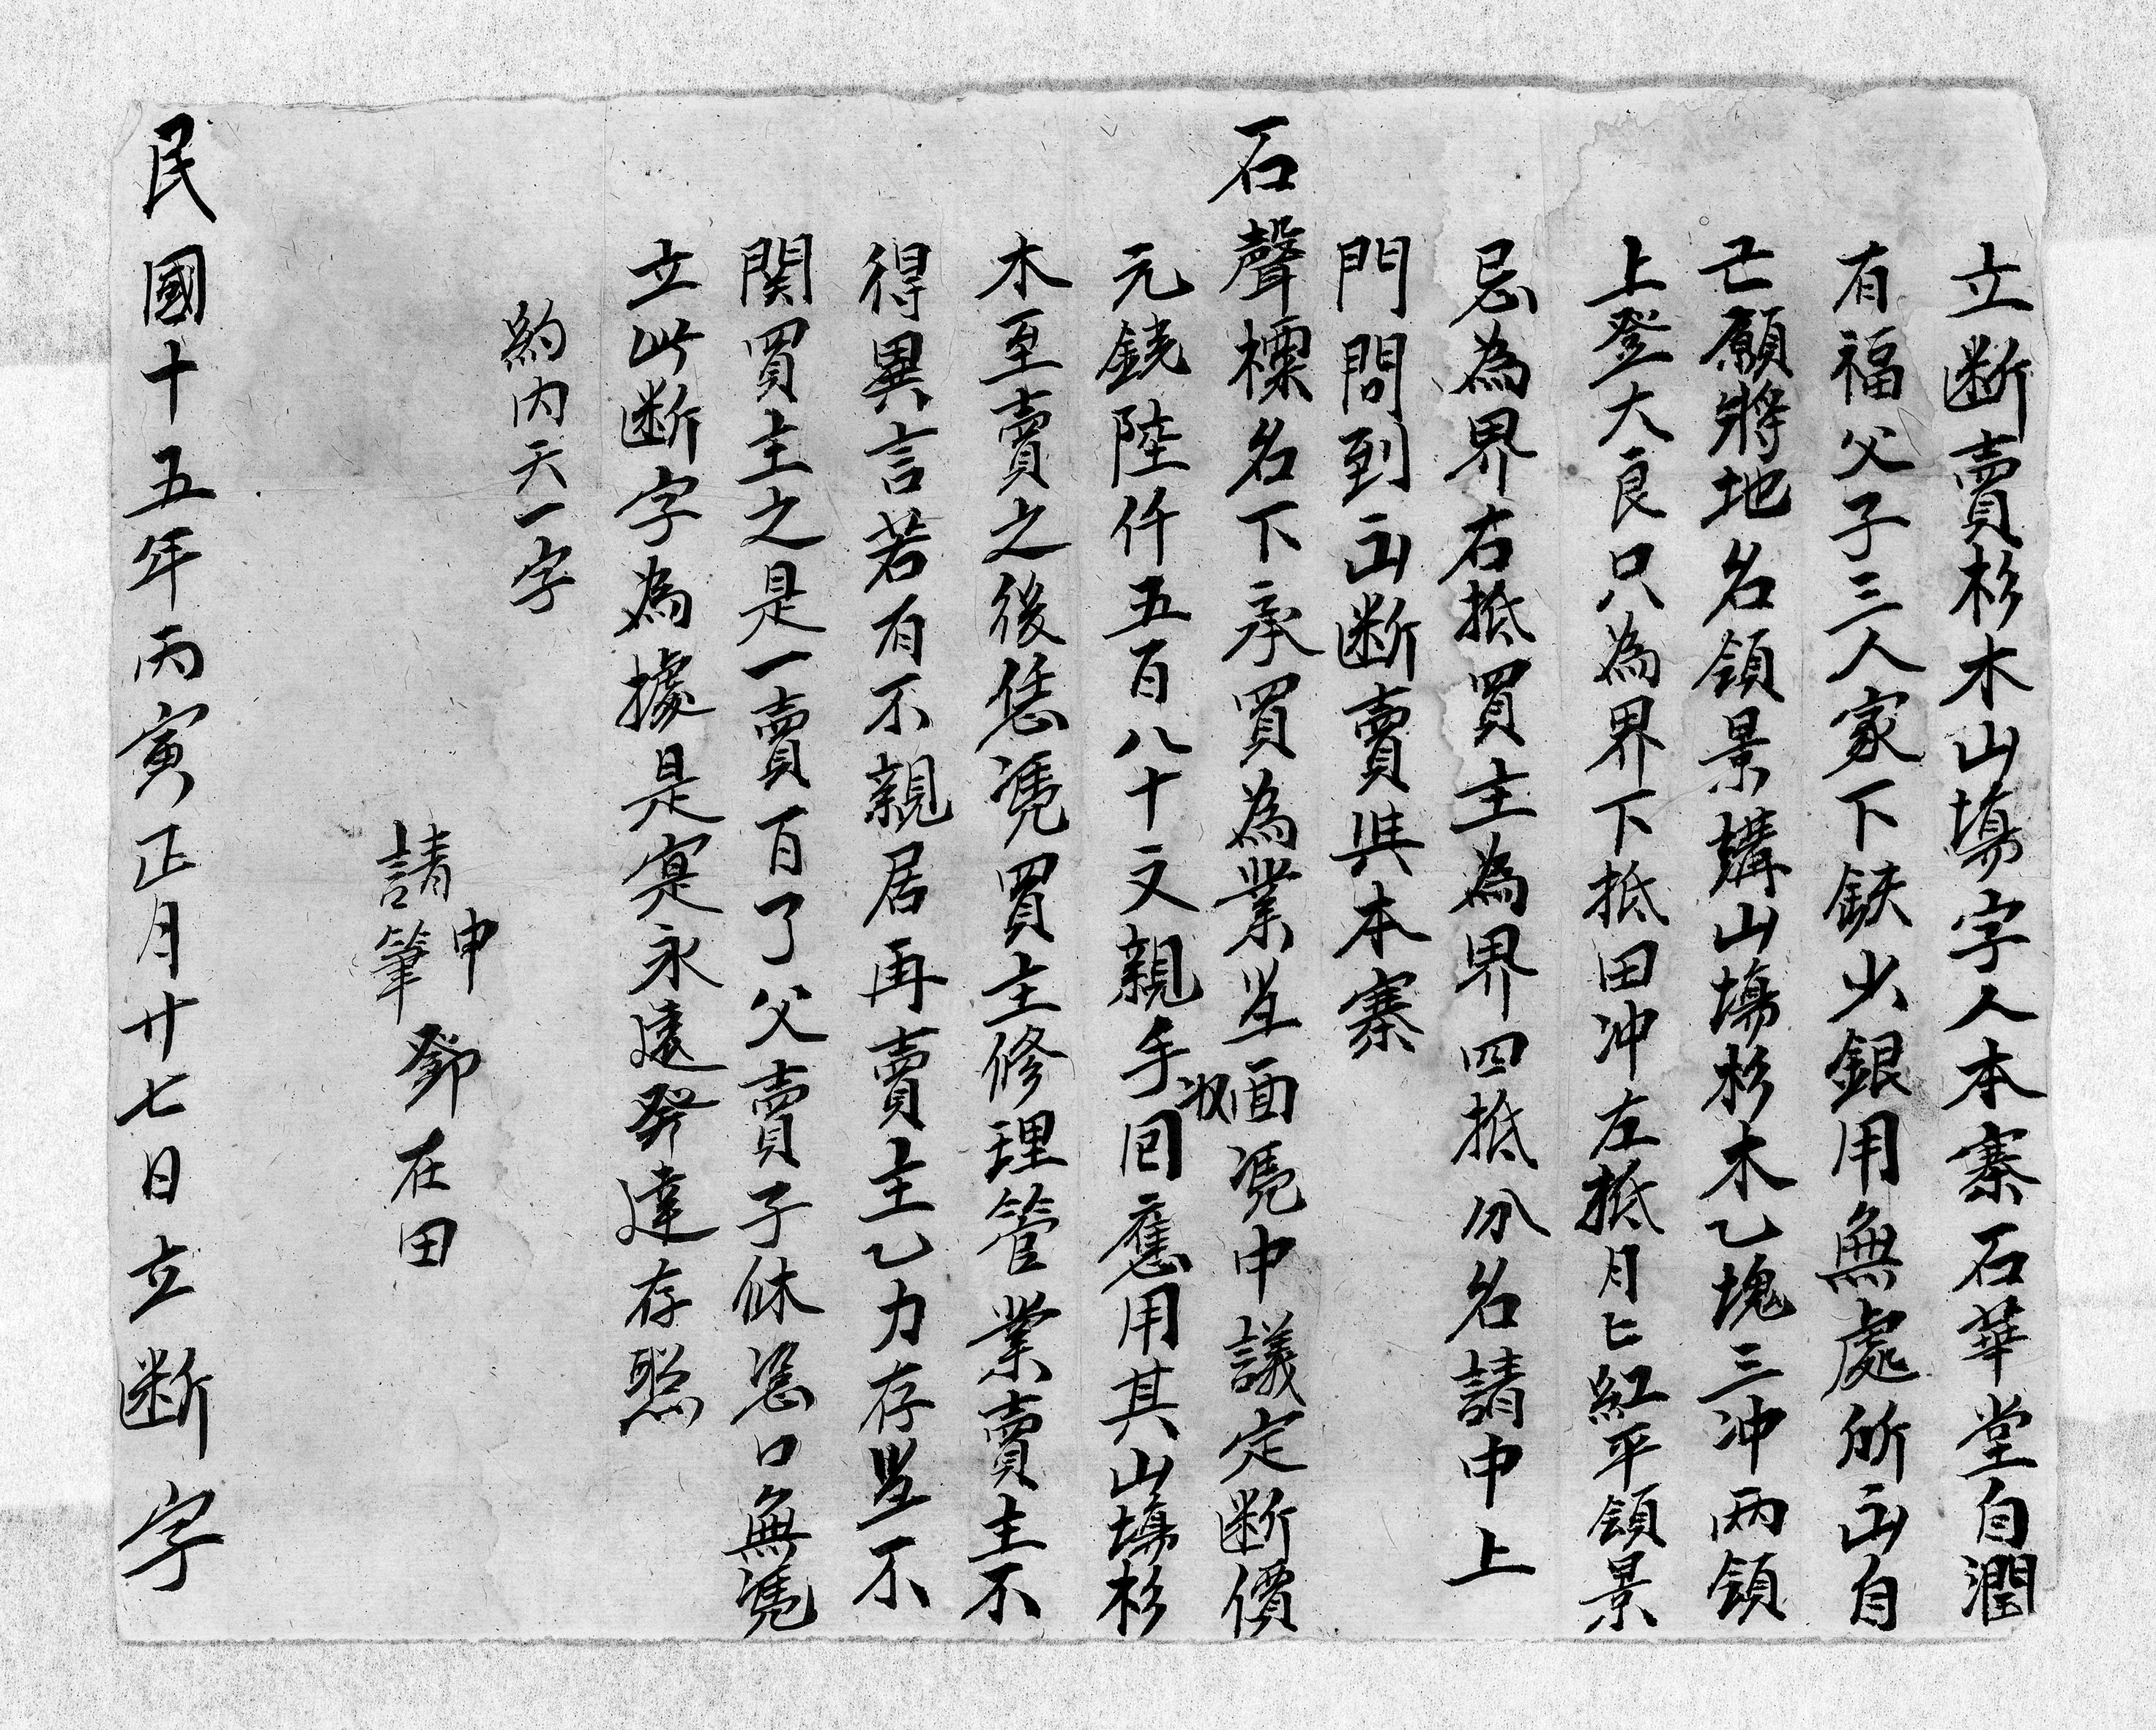 立断賣杉木山塲字人本寨石華堂自潤
有福父子三人家下缺少銀用無處所出自
己願將地名領景搆山塲杉木乙塊三冲兩領
上登大良只為界下抵田冲左抵月匕紅平領景
忌為界右抵買主為界四抵分名請中上
門問到出断賣與本寨
石聲標名下承買為業当面凴中議定断價
元銭陸仟五百八十文親手收回應用其山塲杉
木至賣之後恁凴買主修理管業賣主不
得異言若有不親居再賣主乙力存当不
関買主之是一賣百了父賣子休恐口無凴
立此断字為據是寔永遠發達存照
約內天一字
請中筆鄧在田
民國十五年丙寅正月廿七日立断字